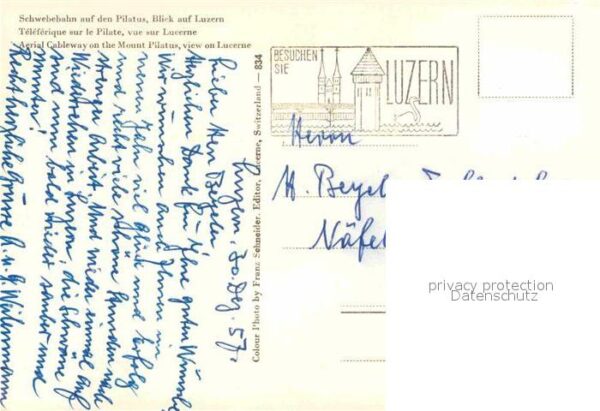 Schwebebahn auf den Pilatus, Blick auf Luzern
Téléférique sur le Pilate, vue sur Lucerne
Aerial Cableway on the Mount Pilatus, view on Lucerne
Colour Photo by Franz Schneider, Editor, Lucerne, Switzerland — 834
BESUCHEN
SIE
LUZERN
Luzern, 30. Dez. 57.
Lieber Herr Beyeler
Herzlichen Dank für Ihre guten Wünsche
Wir wünschen auch Ihnen im
neuen Jahr viel Glück und Erfolg
und recht viele schöne Stunden nach
strenger Arbeit. Und wieder einmal auf
Wiedersehn in Luzern, die Schwäne
sind nun bald wieder sauber und
munter!
Recht herzliche Grüsse
Herrn
H. Beyel
Näfel
privacy protection
Datenschutz